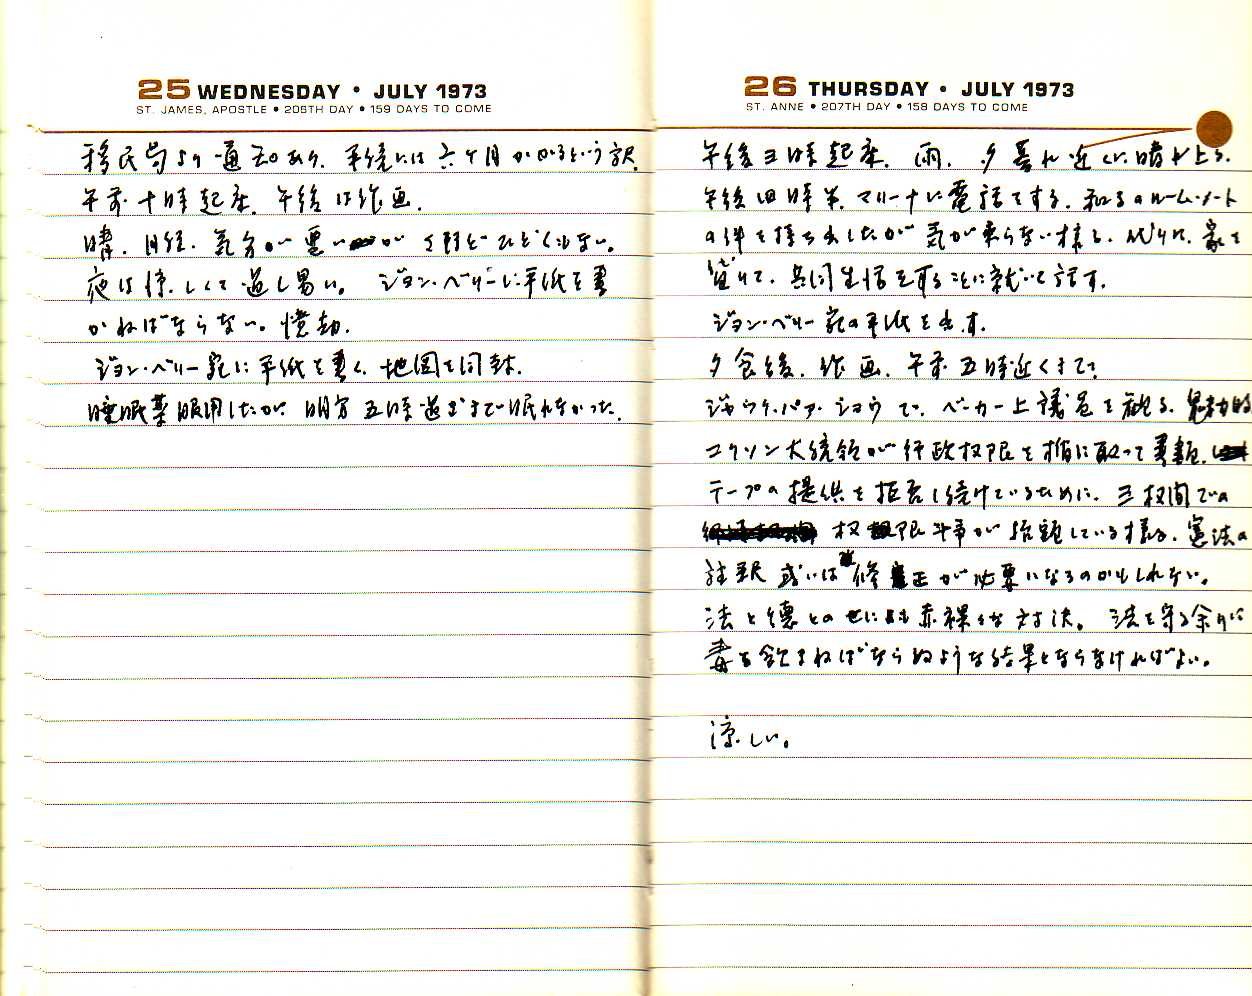 25 WEDNESDAY • JULY 1973
ST. JAMES, APOSTLE • 206TH DAY • 159 DAYS TO COME
移民局より通知あり、手続には六ヶ月かかるという訳。
午前十時起床。午後は作画。
晴。月経。気分が悪いが ほどひどくない。
夜は涼しくて過し易い。ジョン・ベリーに手紙を書
かねばならない。憶劫。
ジョン・ベリー宛に手紙を書く。地図を同封。
睡眠薬服用したが、明方五時過ぎまで眠れなかった。
26 THURSDAY • JULY 1973
ST. ANNE • 207TH DAY • 158 DAYS TO COME
午後三時起床。雨。夕暮れ近くに晴れ上る。
午後四時半、マリーナに電話をする。 ルーム・メート
の件を持ち出したが気が乗らない様子。代りに、家を
借りて、共同生活をすることに就いて話す。
ジョン・ベリー宛の手紙を出す。
夕食後、作画。午前五時近くまで。
ショウで、ベーカー上議員を観る。魅力的
ニクソン大統領が行政权限を楯に取って書類、
テープの提供を拒否し続けているために、三权間での
权限斗争が している様子。憲法の
註釈或いは修正が必要になるのかもしれない。
法と徳との 赤裸々な対決。法を守る余りに
毒を飲まねばならぬような結果とならなければよい。
涼しい。